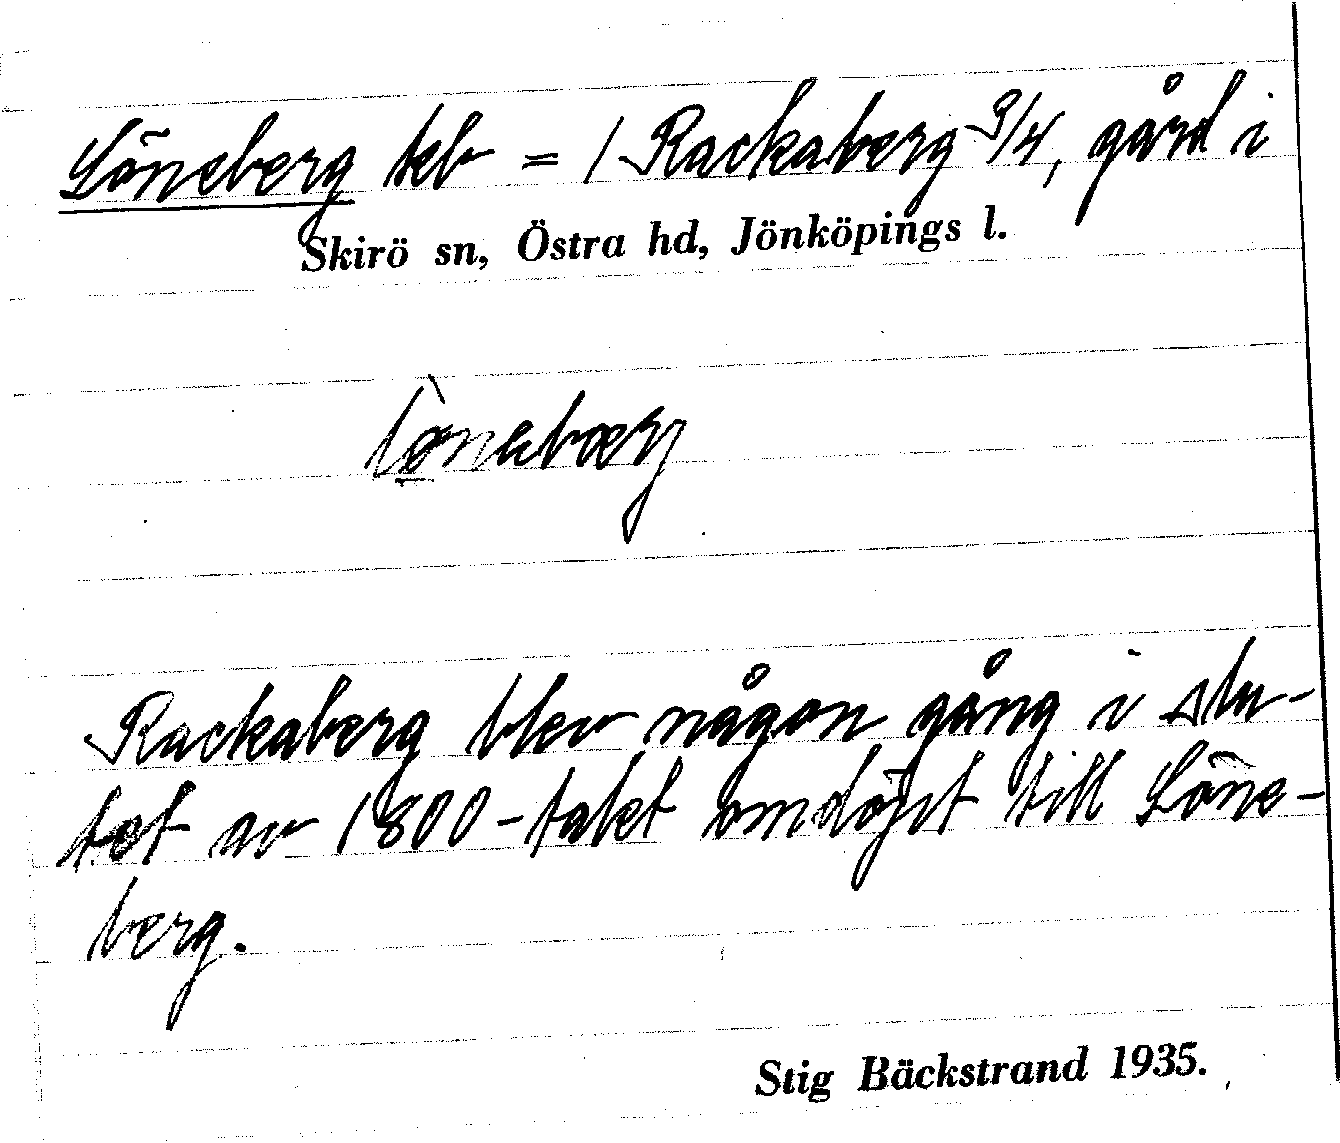 Löneberg keb = 1 Rackaberg 3/4, gård i
Skirö sn, Östra hd, Jönköpings l.
Rackaberg blev någon gång i slu-
tet av 1800-talet omdöpt till Löne-
berg.
Stig Bäckstrand 1935.